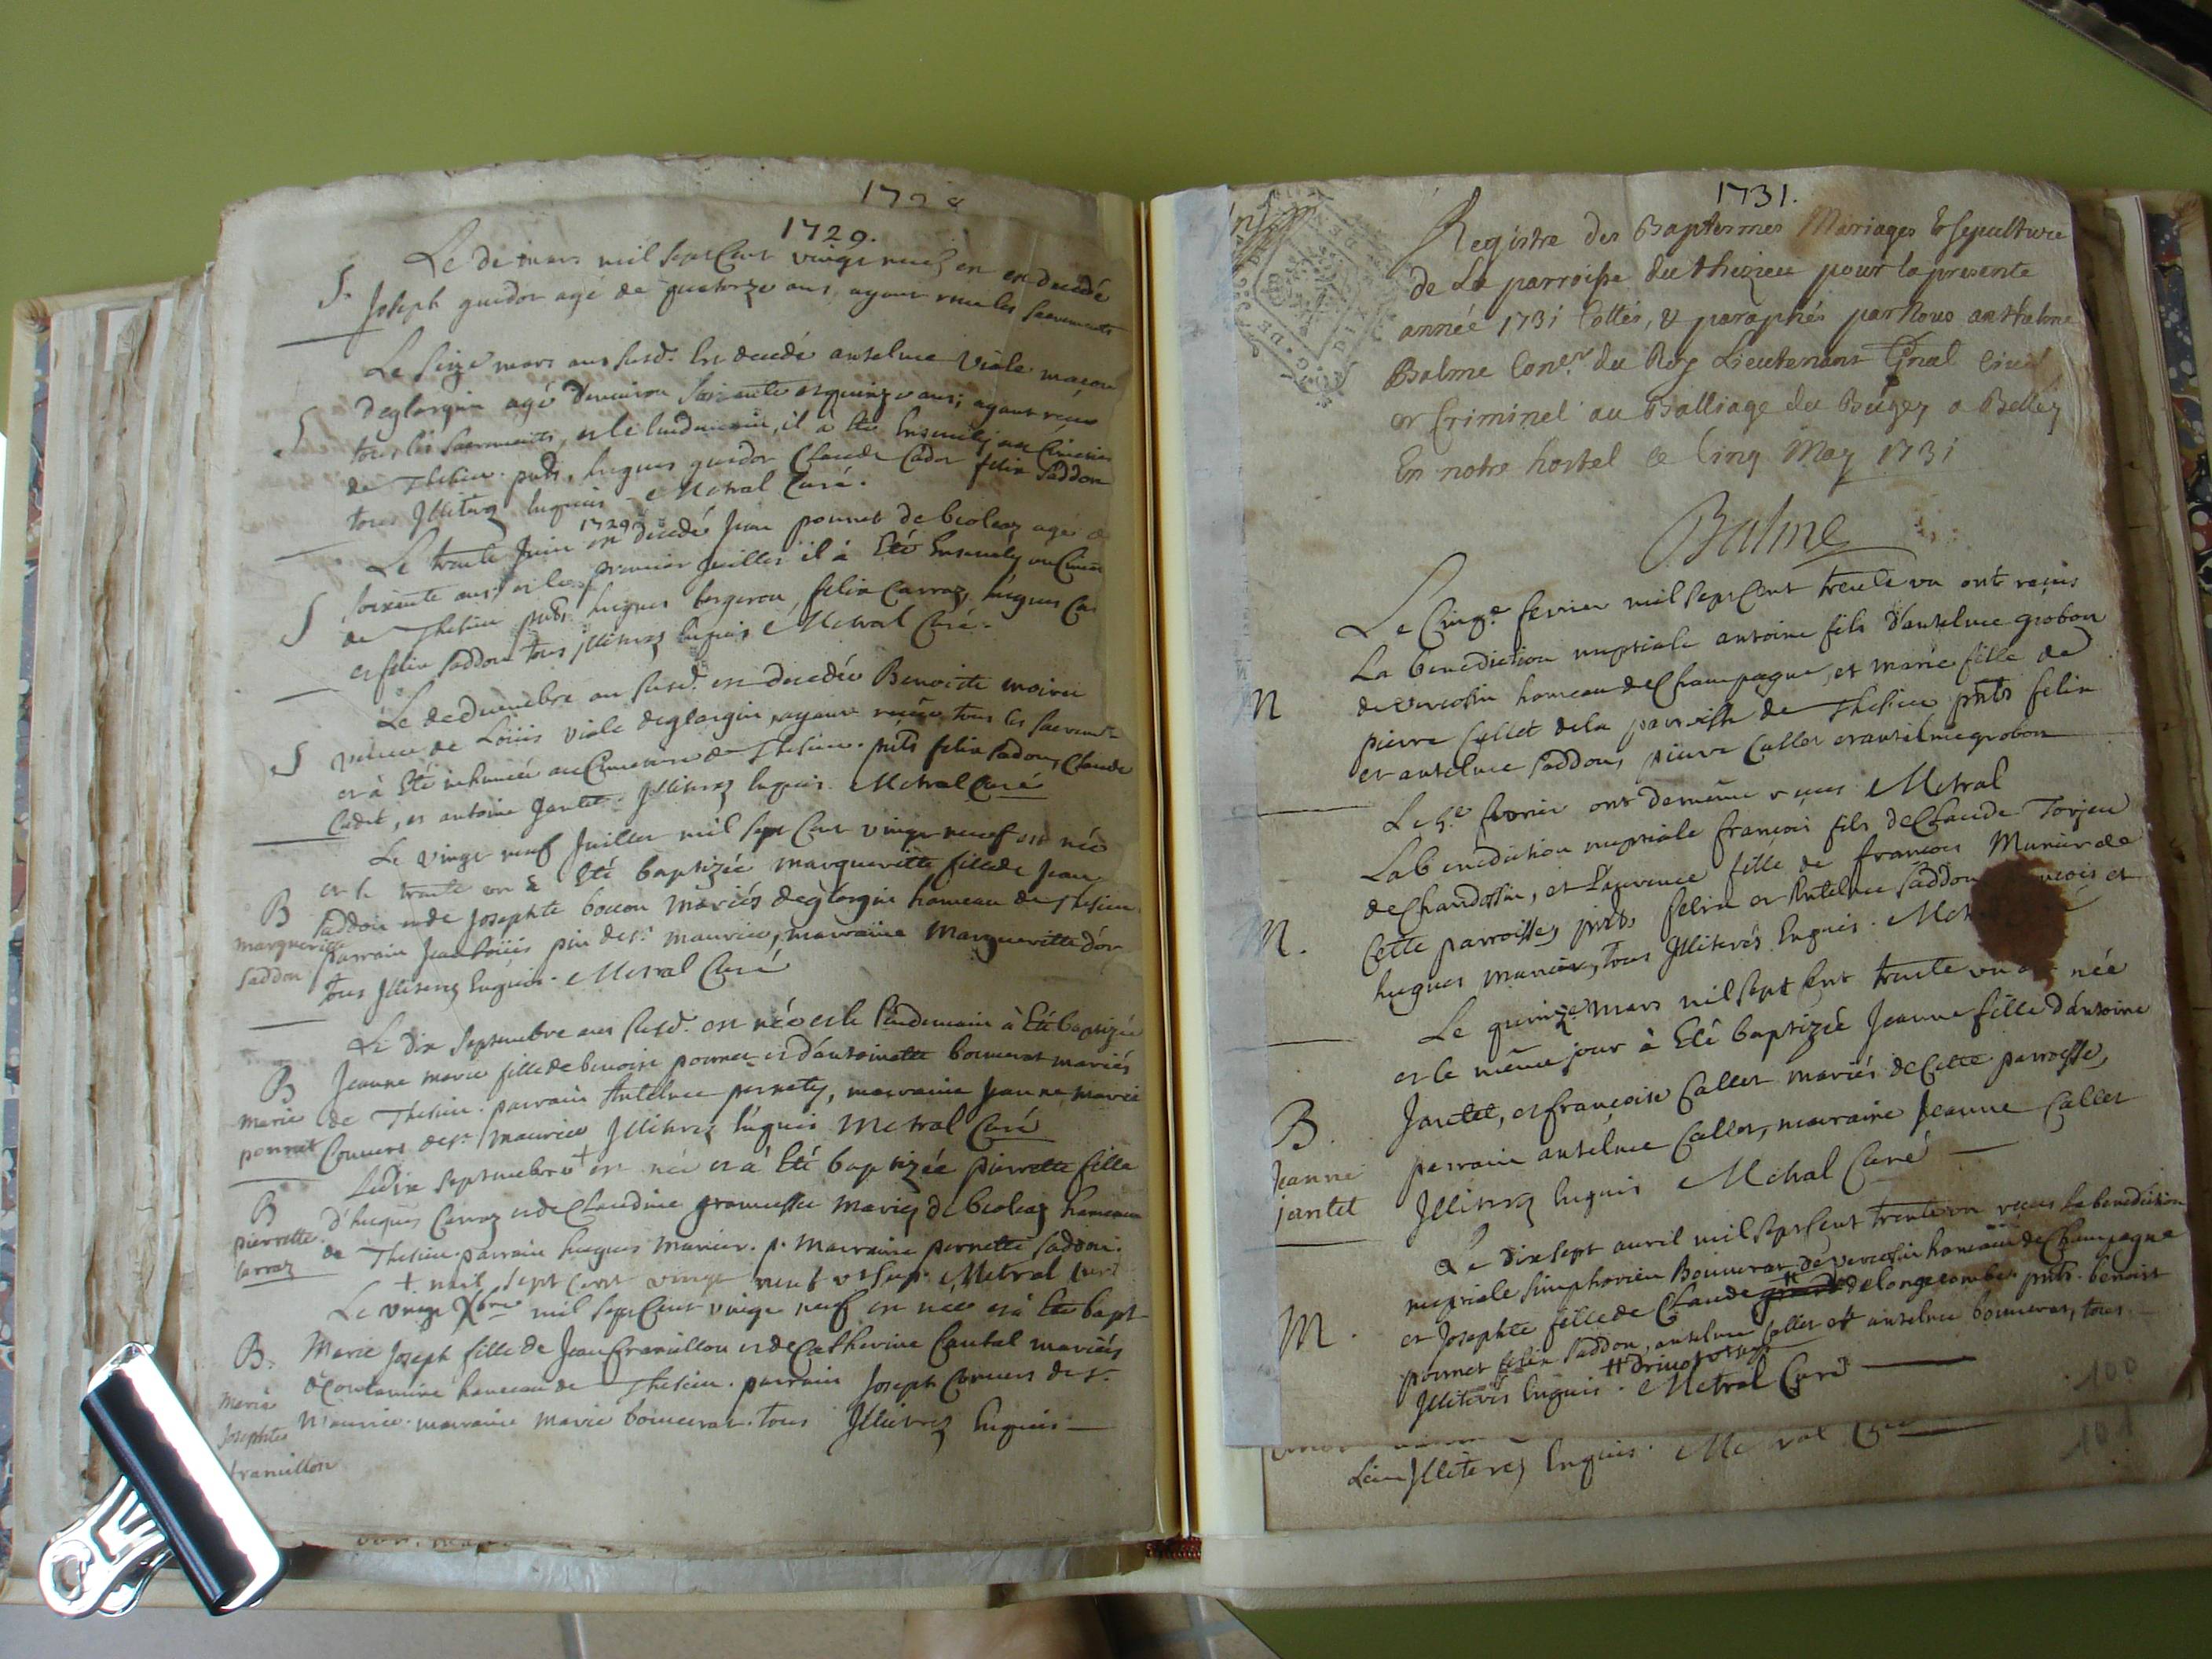 1728
1729.
Le de mars mil sept Cent vingt neuf en est decedé
S. Joseph guidor agé de quatorze ans, ayant receu les sacrements
Le seize mars an susd. Est decedé anselme Viale maçon
S deglargin agé denviron soixante et quinze ans; ayant reçeu
tous les sacrements, et le lendemain, il à été Ensevely au Cimetiere
de Thesieu. pnts, hugues guidor Claude Cador felix saddon
tous Jlliterez Enquis Metral Curé.
1729
Le trente Juin est decedé Jean ponnet de beolaz agé de
S soixante ans, et le premier Juillet il à Eté Ensevely au Cimet
de Thesieu pnts hugues bergeron, felix Carraz, hugues Car
et felix saddon tous jlliterez Enquis Metral Curé.
Le decembre an susd. est decedée Benoiste moiret
S veuve de Loüis viale deglargin, ayant reçeu tous les sacremts
et à Eté inhumée au Cimetiere de Thesieu. pnts felix sadon, Claude
Cadet, et antoine Jantet. Jlliterez Enquis. Metral Curé
Le vingt neuf Juillet mil sept Cent vingt neuf est née
et le trente on à Eté baptizée margueritte fille de Jean
B saddon et de Josephte boccon mariés deglargin hameau de Thesieu
marguerite
saddon
parrain Jean Loüis pin de st. maurice, marraine Margueritte d'or
tous Jlliterez Enquis. Metral Curé
Le dix septembre an susd. est née et le lendemain à Eté baptizée
B Jeanne marie fille de benoist ponnet et d'antoinette bouverat mariés
marie
ponnet
de Thesieu. parrain Antelme pernety, marraine Jeanne marie
Convers de st. maurice Jlliterez Enquis Metral Curé
Le dix septembre + est née et à Eté baptizée pierrette fille
B d'hugues Carraz et de Claudine gramusse mariez de beolaz hameau
pierrette
Carraz
de Thesieu. parrain hugues Munier. p. Marraine pernette saddon.
+ mil sept cent vingt neuf ut sup. Metral Curé
Le vingt Xbre mil sept Cent vingt neuf est née et à Eté bapt
B. Marie Joseph fille de Jean Framillon et de Catherine Cantal mariés
de Contamine hameau de Thesieu. parrain Joseph Convers de st.
marie
Josephte
framillon
Maurice. marraine marie bouverat. tous Jlliterez Enquis
1731.
Registre des Baptesmes Mariages & sepulture
de La parroisse du thezieu pour la presente
année 1731 Cottés, & paraphés par Nous anthelme
Balme Conser. du Roy Lieutenant Gnal Civil
et Criminel au Balliage du Bugey a Belley
En notre hostel ce Cinq May 1731
Balme
Le Cinqe. fevrier mil sept Cent trente un ont reçus
La benediction nuptiale antoine fils d'antelme grobon
M de vercosin hameau de Champagne, et marie fille de
pierre Callet de la parroisse de Thesieu pnts felix
et antelme saddon, pierre Callet et antelme grobon
Le 5e. fevrier ont de meme reçus Metral
La benediction nuptiale françois fils de Claude Torjeu
de Chandossin, et Laurence fille de francois Munier de
M. Cette parroisse, pnts, felix et Antelme saddon
hugues munier, tous Jlliterés Enquis.
Le quinze mars mil sept Cent trente un est née
et le même jour à Eté baptizée Jeanne fille d'antoine
B. Jantet, et françoise Callet mariés de Cette parroisse,
Jeanne
jantet
parrain antelme Callet, marraine Jeanne Callet
Jlliterez Enquis Metral Curé
Le dix sept avril mil sept Cent trente un reçus la benediction
nuptiale simphorien Bouverat de vercosin hameau de Champagne
M. et Josephte fille de Claude # de longecombe. pnts. benoist
ponnet felix saddon, antelme Callet et antelme bouverat, tous
Jlliterés Enquis. Metral Curé
100
101
Jlliterez Enquis. Metral Curé